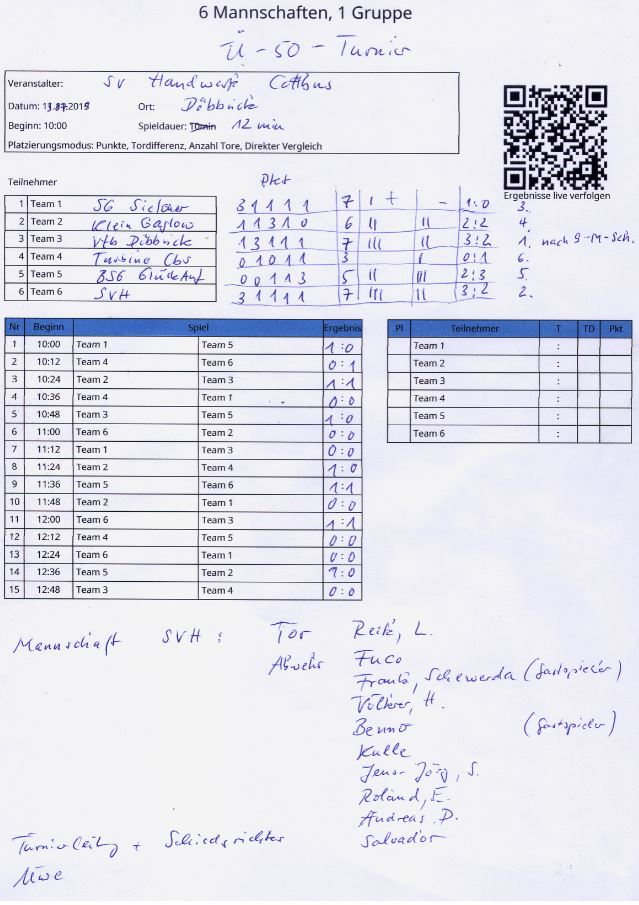 6 Mannschaften, 1 Gruppe
Ü - 50 - Turnier
Veranstalter: SV Handwerk Cottbus
Datum: 11.07.2015 Ort: Döbbrick
Beginn: 10:00 Spieldauer: 10min 12 min
Platzierungsmodus: Punkte, Tordifferenz, Anzahl Tore, Direkter Vergleich
Ergebnisse live verfolgen
Teilnehmer Pkt
1 Team 1 SG Sielow 3 1 1 1 1 7 I + - 1:0 3.
2 Team 2 Klein Gaglow 1 1 3 1 0 6 II II 2:2 4.
3 Team 3 VfB Döbbrick 1 3 1 1 1 7 III II 3:2 1. nach 9-M-Sch.
4 Team 4 Turbine Cbs 0 1 0 1 1 3 I 0:1 6.
5 Team 5 BSG Glück Auf 0 0 1 1 3 5 II III 2:3 5.
6 Team 6 SVH 3 1 1 1 1 7 III II 3:2 2.
Nr Beginn Spiel Ergebnis
1 10:00 Team 1 Team 5 1:0
2 10:12 Team 4 Team 6 0:1
3 10:24 Team 2 Team 3 1:1
4 10:36 Team 4 Team 1 0:0
5 10:48 Team 3 Team 5 1:0
6 11:00 Team 6 Team 2 0:0
7 11:12 Team 1 Team 3 0:0
8 11:24 Team 2 Team 4 1:0
9 11:36 Team 5 Team 6 1:1
10 11:48 Team 2 Team 1 0:0
11 12:00 Team 6 Team 3 1:1
12 12:12 Team 4 Team 5 0:0
13 12:24 Team 6 Team 1 0:0
14 12:36 Team 5 Team 2 1:0
15 12:48 Team 3 Team 4 0:0
Pl Teilnehmer T TD Pkt
Team 1 :
Team 2 :
Team 3 :
Team 4 :
Team 5 :
Team 6 :
Mannschaft SVH : Tor L.
Abwehr Fuco
Frank, Schewerda (Gastspieler)
H.
Benno (Gastspieler)
Kulle
Jens-Jörg, S.
Roland, E.
Andreas D.
Salvador
Turnierleitung + Schiedsrichter
Uwe